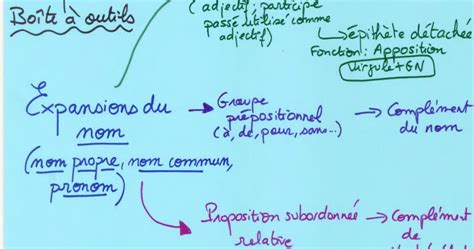 Boîte à outils
(adjectif; participe
passé utilisé comme
adjectif)
épithète détachée
Fonction: Apposition
Virgule + GN
Expansions du
nom
(nom propre, nom commun,
pronom)
Groupe
prépositionnel
(à, de, pour, sans...)
Complément
du nom
Proposition subordonnée
relative
Complément
de